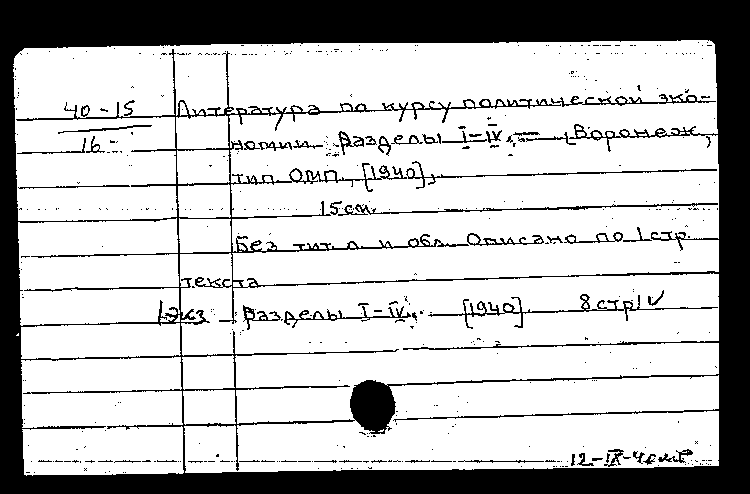 40-15
16-
Литература по курсу политической эко-
номии. Разделы I-IV. — [Воронеж,
тип. ОМП, [1940],
15 см.
Без тит. л. и обл. Описано по 1 стр.
текста
1 экз Разделы I-IV. [1940] 8 стр
12-IX-40